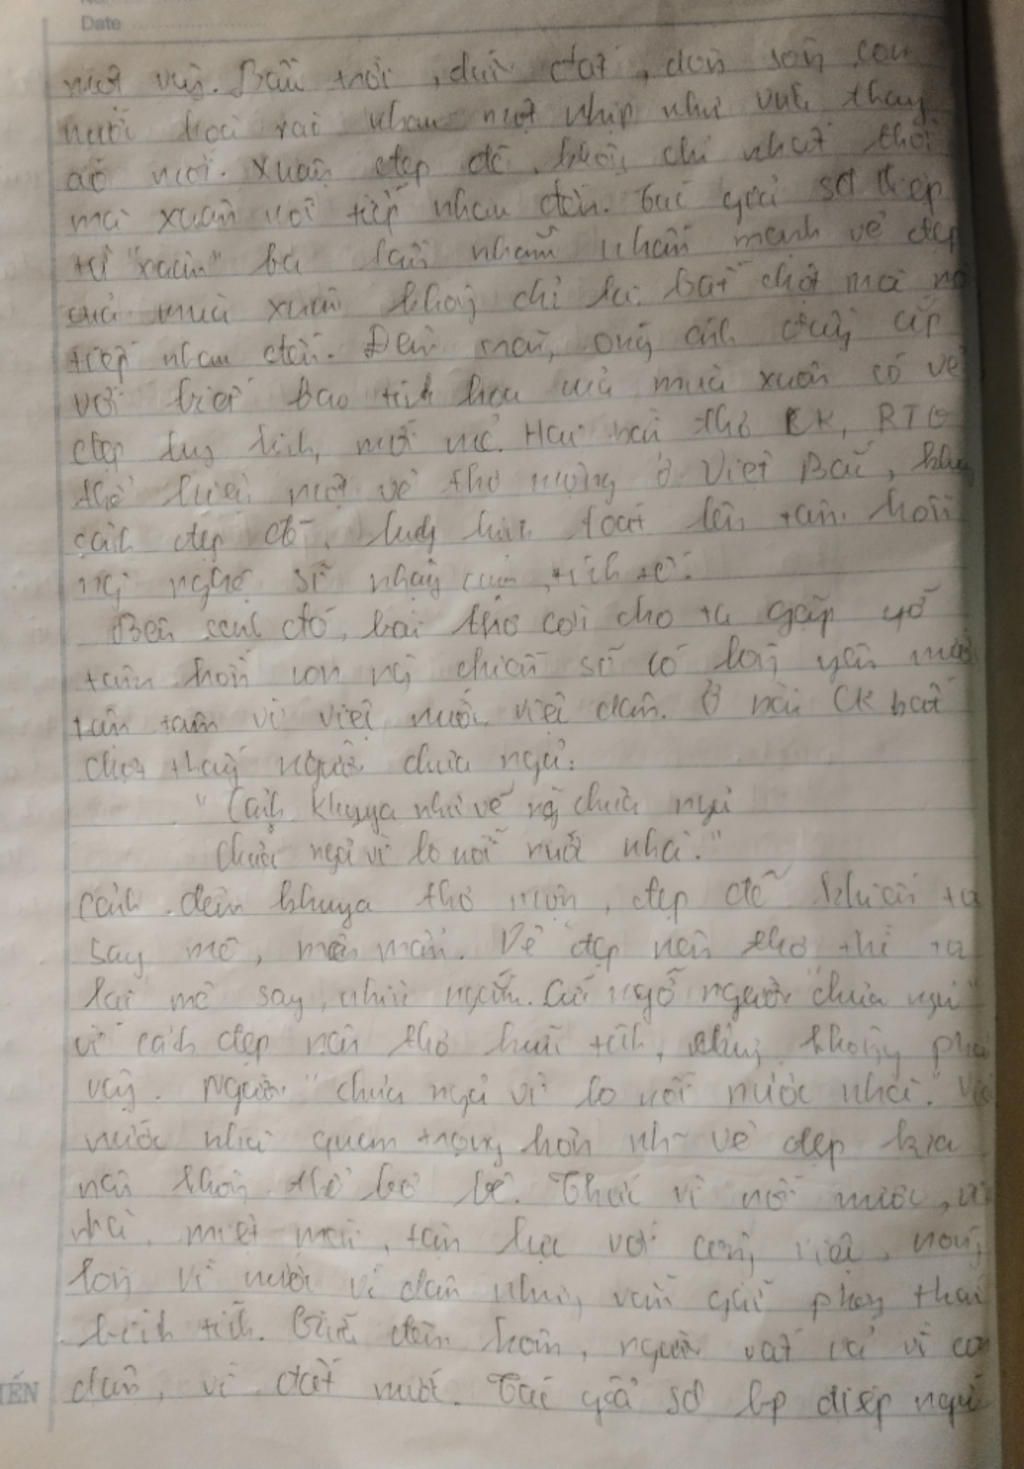 Date
một vùng. Bầu trời, dưới đất, dòng sông, con
người hoà vào nhau một nhịp như vừa thay
áo mới. Xuân đẹp đẽ không chỉ nhất thời
mà xuân nối tiếp nhau đến. Tác giả sd điệp
từ "xuân" ba lần nhằm nhấn mạnh vẻ đẹp
của mùa xuân không chỉ là bất chợt mà nó
tiếp nhau đến. Đêm ánh trăng
với biết bao tinh hoa của mùa xuân có vẻ
đẹp mới mẻ. Hai bài thơ CK, RTG
thể hiện một vẻ thơ mộng ở Việt Bắc, khung
cảnh đẹp đẽ, toát lên tâm hồn
ng nghệ sĩ nhạy cảm, tinh tế.
Bên cạnh đó, bài thơ còn cho ta gặp gỡ
tâm hồn con ng chiến sĩ có lòng yêu nước
tận tâm vì việc nước, việc dân. Ở bài CK bất
chợt thấy người chưa ngủ:
"Cảnh khuya như vẽ ng chưa ngủ
Chưa ngủ vì lo nỗi nước nhà."
Cảnh đêm khuya thơ mộng, đẹp đẽ khiến ta
say mê, miên man. Vẻ đẹp nên thơ thì ta
lại mê say, nhìn ngắm. Cứ ngỡ người "chưa ngủ"
vì cảnh đẹp nên thơ hữu tình, nhưng không phải
vậy. Người "chưa ngủ vì lo nỗi nước nhà." Việc
nước nhà quan trọng hơn nh vẻ đẹp kia
nên không thể bỏ bê. Thức vì nỗi nước, nỗi
nhà, miệt mài, tận lực với công việc, nóng
lòng vì nước vì dân nhưng vẫn giữ phong thái
bình tĩnh. Giữa đêm hôm, người vất vả vì con
dân, vì đất nước. Tác giả sd bp điệp ngữ
TIẾN